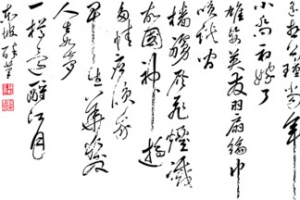 遥想公瑾当年
小乔初嫁了
雄姿英发羽扇纶巾
谈笑间
樯橹灰飞烟灭
故国神游
多情应笑我
早生华发
人生如梦
一樽还酹江月
东坡醉笔